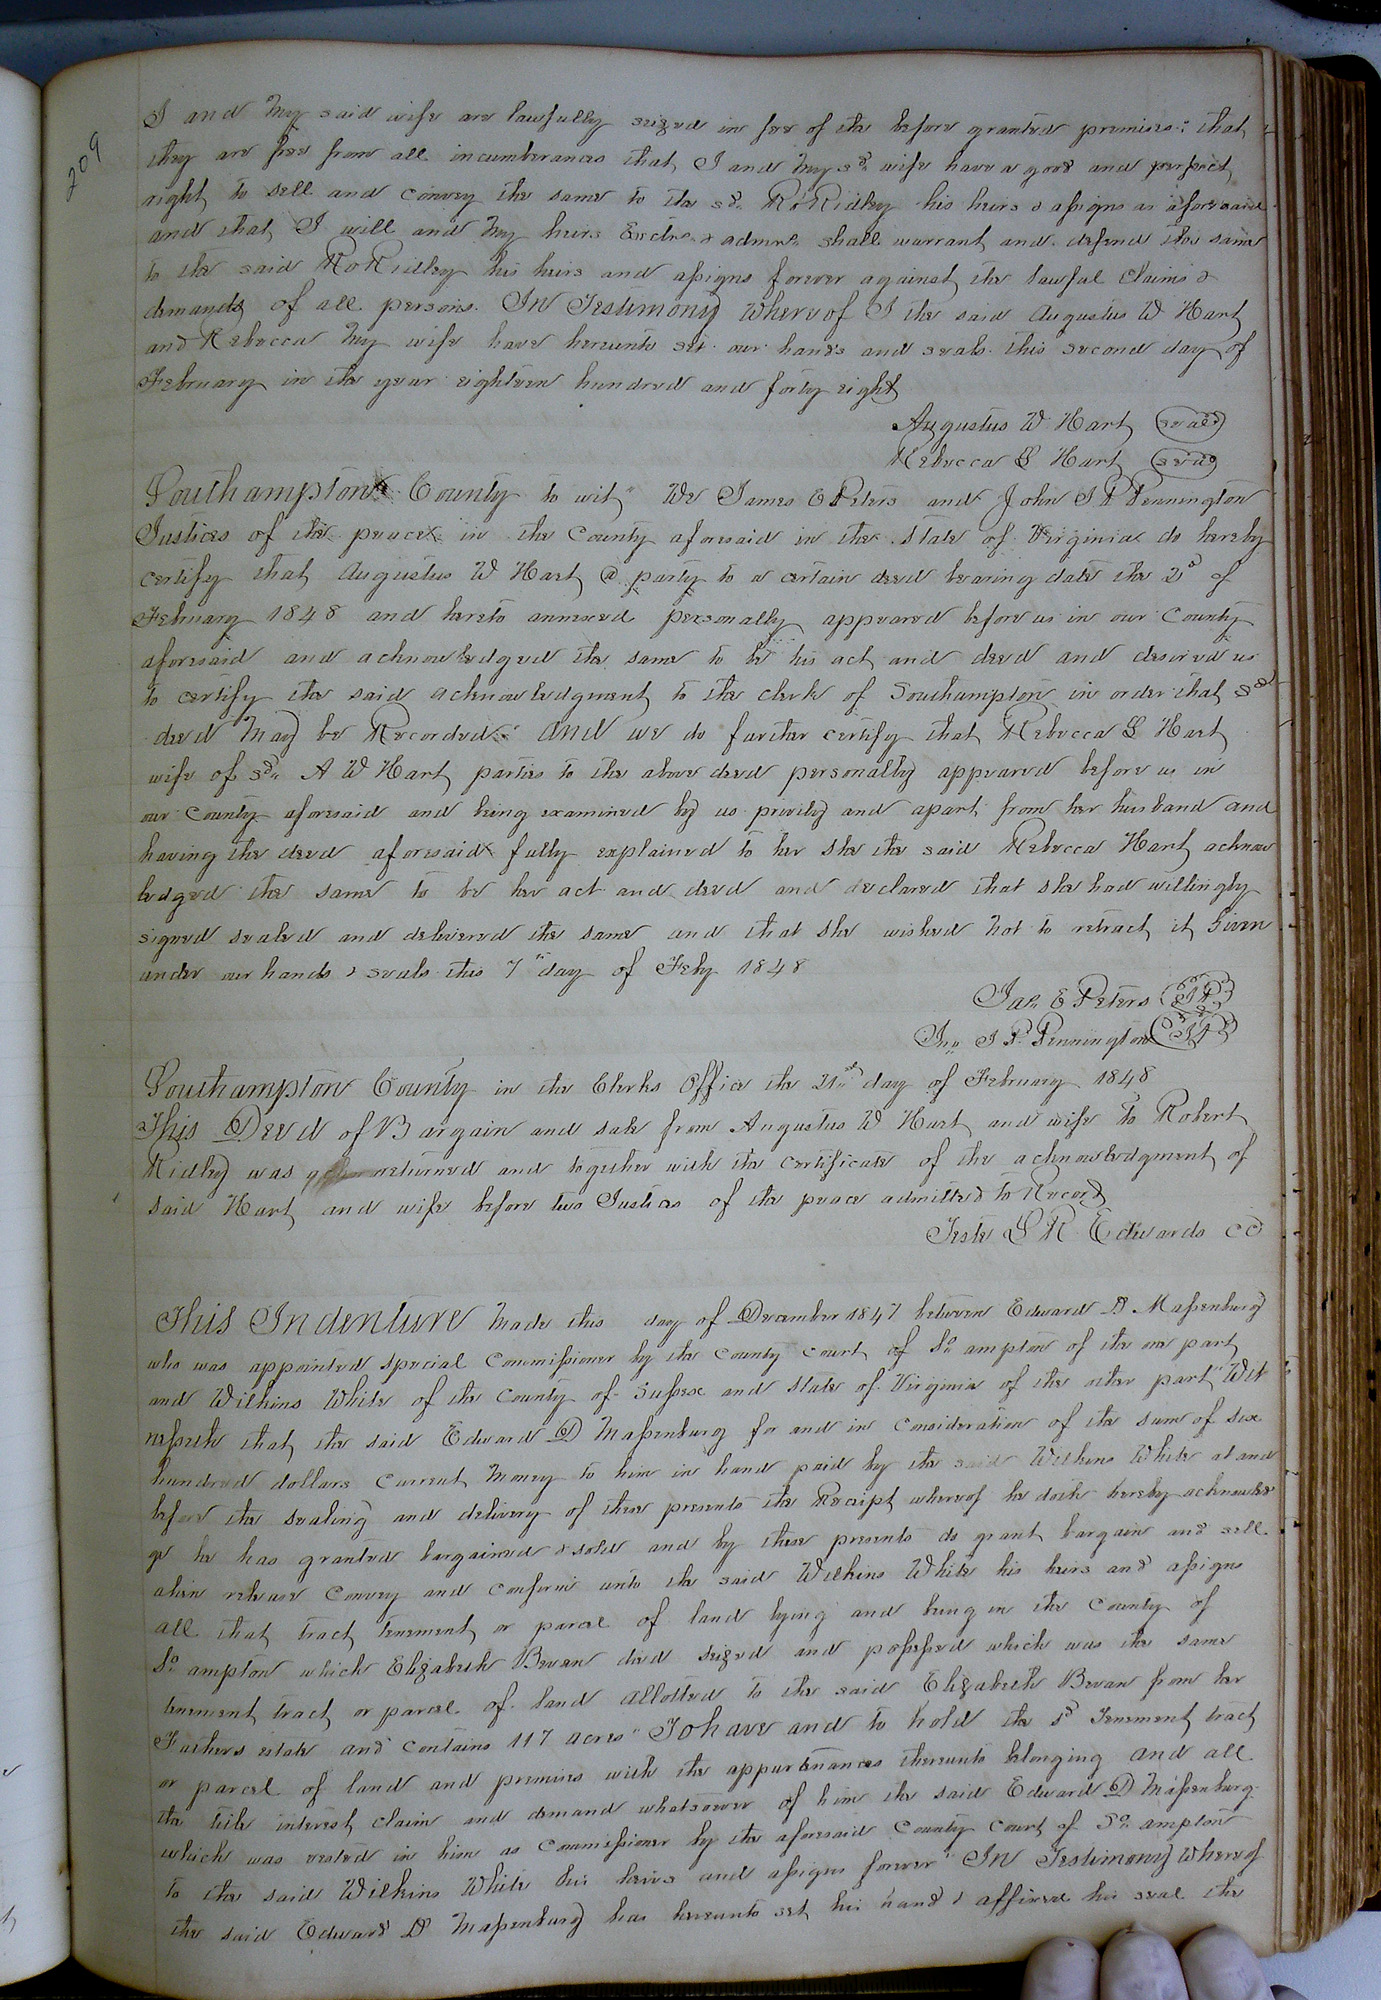 209
I and my said wife are lawfully seized in fee of the before granted premises: that
they are free from all incumberances that I and my sd. wife have a good and perfect
right to sell and convey the same to the sd. Ro Ridley his heirs & assigns as aforesaid
and that I will and my heirs Exctrs. & admrs. shall warrant and defend the same
to the said Ro Ridley his heirs and assigns forever against the lawful claims &
demands of all persons. In Testimony Whereof I the said Augustus W Hart
and Rebecca my wife have hereunto set our hands and seals this second day of
February in the year eighteen hundred and forty eight
Augustus W Hart (seal)
Rebecca S Hart (seal)
Southampton County to wit" We James E Peters and John S P Pennington
Justices of the peace in the County aforesaid in the state of Virginia do hereby
certify that Augustus W Hart a party to a certain deed bearing date the 2d of
February 1848 and hereto annexed personally appeared before us in our County
aforesaid and acknowledged the same to be his act and deed and desired us
to certify the said acknowledgment to the clerk of Southampton in order that sd
deed may be Recorded: And we do further certify that Rebecca S Hart
wife of sd. A W Hart parties to the above deed personally appeared before us in
our County aforesaid and being examined by us privily and apart from her husband and
having the deed aforesaid fully explained to her she the said Rebecca Hart acknow
ledged the same to be her act and deed and declared that she had willingly
signed sealed and delivered the same and that she wished not to retract it Given
under our hands & seals this 7th day of Feby 1848
Jas. E Peters (J P)
Jno. S P. Pennington (J P)
Southampton County in the Clerks Office the 21st day of February 1848
This Deed of Bargain and sale from Augustus W Hart and wife to Robert
Ridley was returned and together with the certificate of the acknowledgment of
said Hart and wife before two Justices of the peace admitted to Record
Teste L R Edwards CC
This Indenture Made this day of December 1847 between Edward D Massenburg
who was appointed special Commissioner by the County court of So. ampton of the one part
and Wilkins White of the County of Sussex and state of Virginia of the other part" Wit
nesseth that the said Edward D Massenburg for and in consideration of the sum of six
hundred dollars current money to him in hand paid by the said Wilkins White at and
before the sealing and delivery of these presents the Receipt whereof he doth hereby acknowled
ge he has granted bargained & sold and by these presents do grant bargain and sell
alien release convey and confirm unto the said Wilkins White his heirs and assigns
all that tract tenement or parcel of land lying and being in the County of
So. ampton which Elizabeth Bevan died seized and possessed which was the same
tenement tract or parcel of land allotted to the said Elizabeth Bevan from her
Fathers estate and contains 117 acres" To have and to hold the sd tenement tract
or parcel of land and premises with the appurtenances thereunto belonging and all
the title interest claim and demand whatsoever of him the said Edward D Massenburg
which was vested in him as Commissioner by the aforesaid County Court of So. ampton
to the said Wilkins White his heirs and assigns forever" In Testimony Whereof
the said Edward D Massenburg has hereunto set his hand & affixed his seal the